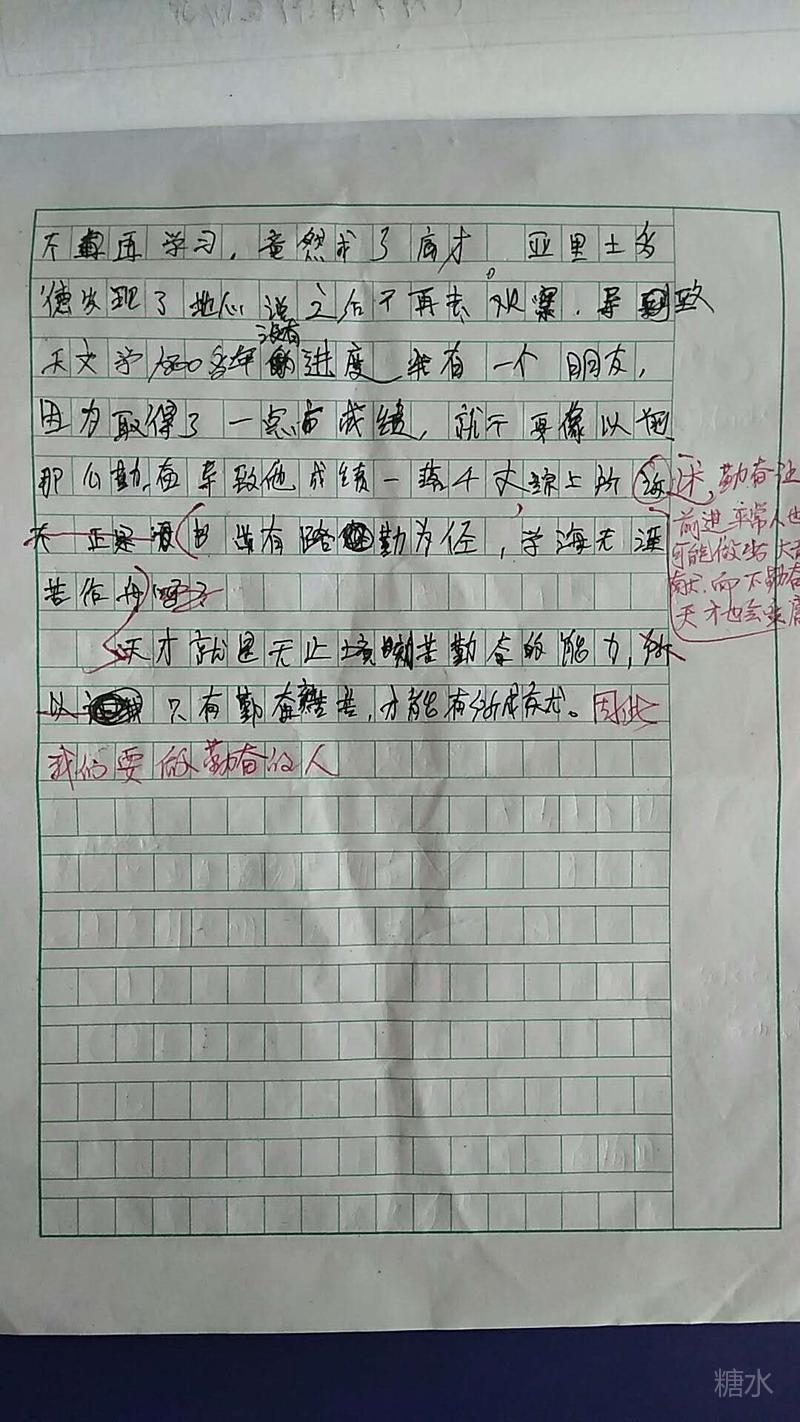 不再学习，竟然成了庸才。亚里士多
德发现了地心说之后不再去观察，导致
天文学1800多年没有进度 我有一个朋友，
因为取得了一点点成绩，就不再像以
那么勤奋导致他成绩一落千丈，综上所述，勤奋让
天 正是 书山有路勤为径，学海无涯
苦作舟
天才就是无止境刻苦勤奋的能力，所
以 只有勤奋 苦，才能有所成就。因此
我们要做勤奋的人
前进 平常人也
可能做出大
贡献，而不勤奋
天才也会变庸
糖水